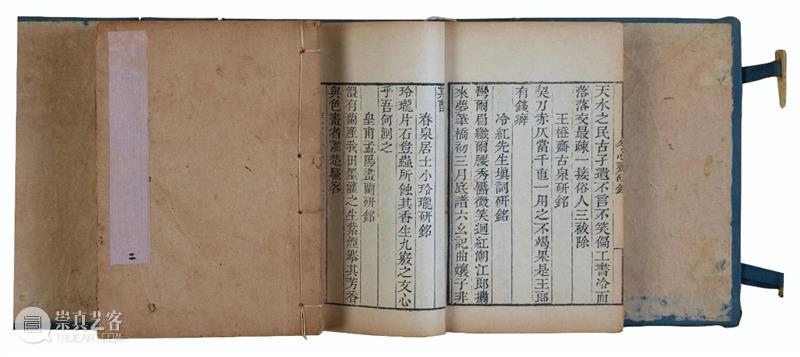 冬心齋研銘
天水之民古孑遺不言不笑偏工書冷而
落落交最疎一接俗人三祓除
王橙齋古泉研銘
契刀赤仄當千直一用之不竭果是王郎
有錢癖
冷紅先生填詞研銘
彎爾眉纖爾腰秀靨微笑迴紅潮江郎攜
來夢筆橋初三月底譜六幺記曲孃子非
其
春泉居士小玲瓏研銘
玲瓏片石豈蟲所蝕其香生九竅之文心
乎吾何測之
皇甫孟陽畫蘭研銘
澧有蘭產我田墨瀋之生紫煙搴其芳香
與色畫者蕭楚騷客
二
崇真艺客
TRUEART.COM